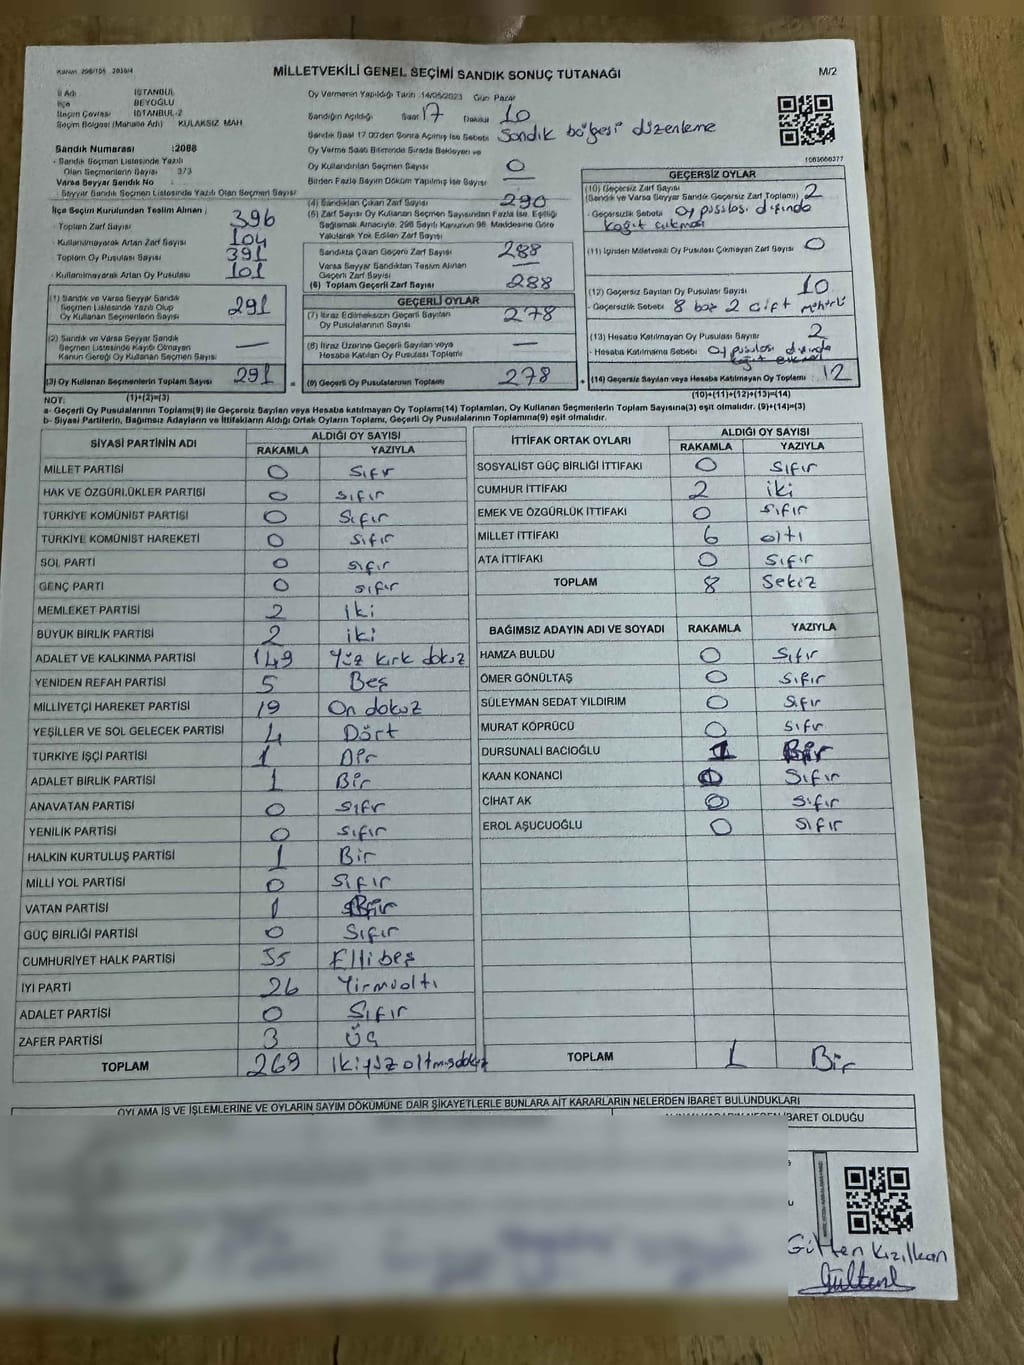 Kanun 298/105 2839/4
MİLLETVEKİLİ GENEL SEÇİMİ SANDIK SONUÇ TUTANAĞI
M/2
İl Adı İSTANBUL
İlçe BEYOĞLU
Seçim Çevresi İSTANBUL-2
Seçim Bölgesi (Mahalle Adı) KULAKSIZ MAH
Sandık Numarası :2088
- Sandık Seçmen Listesinde Yazılı
Olan Seçmenlerin Sayısı 373
Varsa Seyyar Sandık No :
- Seyyar Sandık Seçmen Listesinde Yazılı Olan Seçmen Sayısı
Oy Vermenin Yapıldığı Tarih :14/05/2023 Gün Pazar
Sandığın Açıldığı Saat 17 Dakika 10
Sandık Saat 17.00'den Sonra Açılmış İse Sebebi Sandık bölgesi düzenleme
Oy Verme Saati Bitiminde Sırada Bekleyen ve
Oy Kullandırılan Seçmen Sayısı 0
Birden Fazla Sayım Döküm Yapılmış İse Sayısı —
İlçe Seçim Kurulundan Teslim Alınan ;
- Toplam Zarf Sayısı 396
- Kullanılmayarak Artan Zarf Sayısı 104
- Toplam Oy Pusulası Sayısı 391
- Kullanılmayarak Artan Oy Pusulası 101
(1) Sandık ve Varsa Seyyar Sandık
Seçmen Listesinde Yazılı Olup
Oy Kullanan Seçmenlerin Sayısı 291
(2) Sandık ve Varsa Seyyar Sandık
Seçmen Listesinde Kayıtlı Olmayan
Kanun Gereği Oy Kullanan Seçmen Sayısı —
(3) Oy Kullanan Seçmenlerin Toplam Sayısı 291
(4) Sandıktan Çıkan Zarf Sayısı 290
(5) Zarf Sayısı Oy Kullanan Seçmen Sayısından Fazla İse, Eşitliği
Sağlamak Amacıyla, 298 Sayılı Kanunun 98. Maddesine Göre
Yakılarak Yok Edilen Zarf Sayısı
Sandıkta Çıkan Geçerli Zarf Sayısı 288
Varsa Seyyar Sandıktan Teslim Alınan
Geçerli Zarf Sayısı —
(6) Toplam Geçerli Zarf Sayısı 288
GEÇERLİ OYLAR
(7) İtiraz Edilmeksizin Geçerli Sayılan
Oy Pusulalarının Sayısı 278
(8) İtiraz Üzerine Geçerli Sayılan veya
Hesaba Katılan Oy Pusulası Toplamı —
= (9) Geçerli Oy Pusulalarının Toplamı 278
1083666377
GEÇERSİZ OYLAR
(10) Geçersiz Zarf Sayısı
(Sandık ve Varsa Seyyar Sandık Geçersiz Zarf Toplamı) 2
- Geçersizlik Sebebi Oy pusulası dışında
kağıt çıkması
(11) İçinden Milletvekili Oy Pusulası Çıkmayan Zarf Sayısı 0
(12) Geçersiz Sayılan Oy Pusulası Sayısı 10
- Geçersizlik Sebebi 8 boş 2 çift mühürlü
(13) Hesaba Katılmayan Oy Pusulası Sayısı 2
- Hesaba Katılmama Sebebi Oy pusulası dışında
kağıt
+ (14) Geçersiz Sayılan veya Hesaba Katılmayan Oy Toplamı 12
NOT: (1)+(2)=(3)
(10)+(11)+(12)+(13)=(14)
a- Geçerli Oy Pusulalarının Toplamı(9) ile Geçersiz Sayılan veya Hesaba Katılmayan Oy Toplamı(14) Toplamları, Oy Kullanan Seçmenlerin Toplam Sayısına(3) eşit olmalıdır. (9)+(14)=(3)
b- Siyasi Partilerin, Bağımsız Adayların ve İttifakların Aldığı Ortak Oyların Toplamı, Geçerli Oy Pusulalarının Toplamına(9) eşit olmalıdır.
SİYASİ PARTİNİN ADI ALDIĞI OY SAYISI
RAKAMLA YAZIYLA
MİLLET PARTİSİ 0 Sıfır
HAK VE ÖZGÜRLÜKLER PARTİSİ 0 Sıfır
TÜRKİYE KOMÜNİST PARTİSİ 0 Sıfır
TÜRKİYE KOMÜNİST HAREKETİ 0 Sıfır
SOL PARTİ 0 sıfır
GENÇ PARTİ 0 sıfır
MEMLEKET PARTİSİ 2 iki
BÜYÜK BİRLİK PARTİSİ 2 iki
ADALET VE KALKINMA PARTİSİ 149 Yüz kırk dokuz
YENİDEN REFAH PARTİSİ 5 Beş
MİLLİYETÇİ HAREKET PARTİSİ 19 On dokuz
YEŞİLLER VE SOL GELECEK PARTİSİ 4 Dört
TÜRKİYE İŞÇİ PARTİSİ 1 Bir
ADALET BİRLİK PARTİSİ 1 Bir
ANAVATAN PARTİSİ 0 sıfır
YENİLİK PARTİSİ 0 sıfır
HALKIN KURTULUŞ PARTİSİ 1 Bir
MİLLİ YOL PARTİSİ 0 Sıfır
VATAN PARTİSİ 1 Bir
GÜÇ BİRLİĞİ PARTİSİ 0 Sıfır
CUMHURİYET HALK PARTİSİ 55 Ellibeş
İYİ PARTİ 26 Yirmialtı
ADALET PARTİSİ 0 Sıfır
ZAFER PARTİSİ 3 Üç
TOPLAM 269 İkiyüzaltmışdokuz
İTTİFAK ORTAK OYLARI ALDIĞI OY SAYISI
RAKAMLA YAZIYLA
SOSYALİST GÜÇ BİRLİĞİ İTTİFAKI 0 Sıfır
CUMHUR İTTİFAKI 2 iki
EMEK VE ÖZGÜRLÜK İTTİFAKI 0 sıfır
MİLLET İTTİFAKI 6 altı
ATA İTTİFAKI 0 Sıfır
TOPLAM 8 Sekiz
BAĞIMSIZ ADAYIN ADI VE SOYADI RAKAMLA YAZIYLA
HAMZA BULDU 0 Sıfır
ÖMER GÖNÜLTAŞ 0 Sıfır
SÜLEYMAN SEDAT YILDIRIM 0 Sıfır
MURAT KÖPRÜCÜ 0 Sıfır
DURSUNALİ BACIOĞLU 1 Bir
KAAN KONANCİ 0 Sıfır
CİHAT AK 0 Sıfır
EROL AŞUCUOĞLU 0 Sıfır
TOPLAM 1 Bir
OYLAMA İŞ VE İŞLEMLERİNE VE OYLARIN SAYIM DÖKÜMÜNE DAİR ŞİKAYETLERLE BUNLARA AİT KARARLARIN NELERDEN İBARET BULUNDUKLARI
İBARET OLDUĞU
Gülten Kızılkan